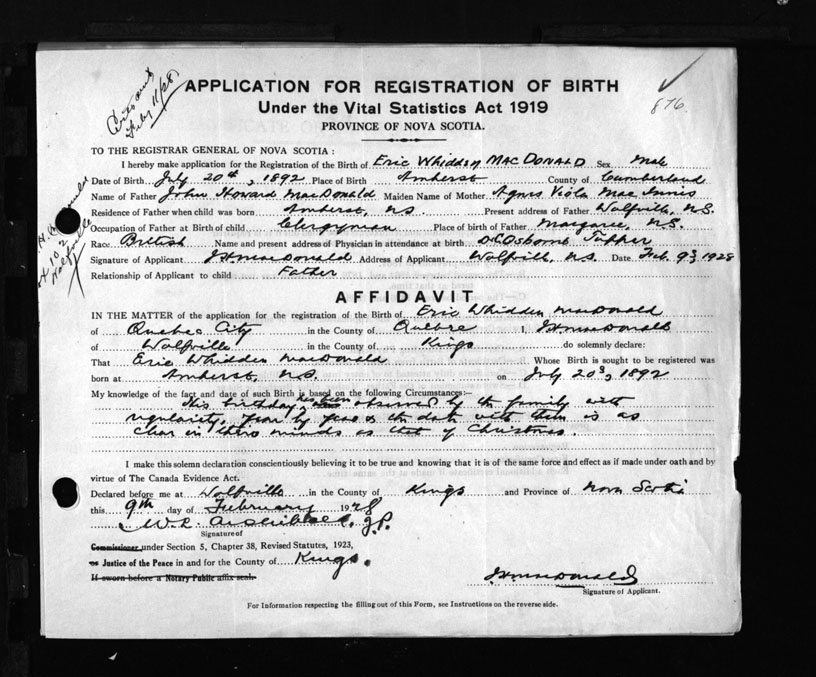 July 11/28
876.
APPLICATION FOR REGISTRATION OF BIRTH
Under the Vital Statistics Act 1919
PROVINCE OF NOVA SCOTIA.
TO THE REGISTRAR GENERAL OF NOVA SCOTIA :
I hereby make application for the Registration of the Birth of Eric Whidden MacDonald Sex Male
Date of Birth July 20th, 1892 Place of Birth Amherst County of Cumberland
Name of Father John Howard MacDonald Maiden Name of Mother Agnes Viola Mac Innis
Residence of Father when child was born Amherst, N.S. Present address of Father Wolfville, N.S.
Occupation of Father at Birth of child Clergyman Place of birth of Father Margaree, N.S.
Race British Name and present address of Physician in attendance at birth Tupper
Signature of Applicant JHMacDonald Address of Applicant Wolfville, N.S. Date Feb. 9, 1928
Relationship of Applicant to child Father
AFFIDAVIT
IN THE MATTER of the application for the registration of the Birth of Eric Whidden MacDonald
of Quebec City in the County of Quebec I, JHMacDonald
of Wolfville in the County of Kings do solemnly declare:
That Eric Whidden MacDonald Whose Birth is sought to be registered was
born at Amherst, N.S. on July 20, 1892
My knowledge of the fact and date of such Birth is based on the following Circumstances:—
This birthday has been observed by the family with
regularity, year by year & the date with them is as
clear in their minds as that of Christmas.
I make this solemn declaration conscientiously believing it to be true and knowing that it is of the same force and effect as if made under oath and by
virtue of The Canada Evidence Act.
Declared before me at Wolfville in the County of Kings and Province of Nova Scotia
this 9th day of February 1928
W.R. J.P.
Signature of
Commissioner under Section 5, Chapter 38, Revised Statutes, 1923,
or Justice of the Peace in and for the County of Kings.
If sworn before a Notary Public affix seal.
JHMacDonald
Signature of Applicant.
For Information respecting the filling out of this Form, see Instructions on the reverse side.